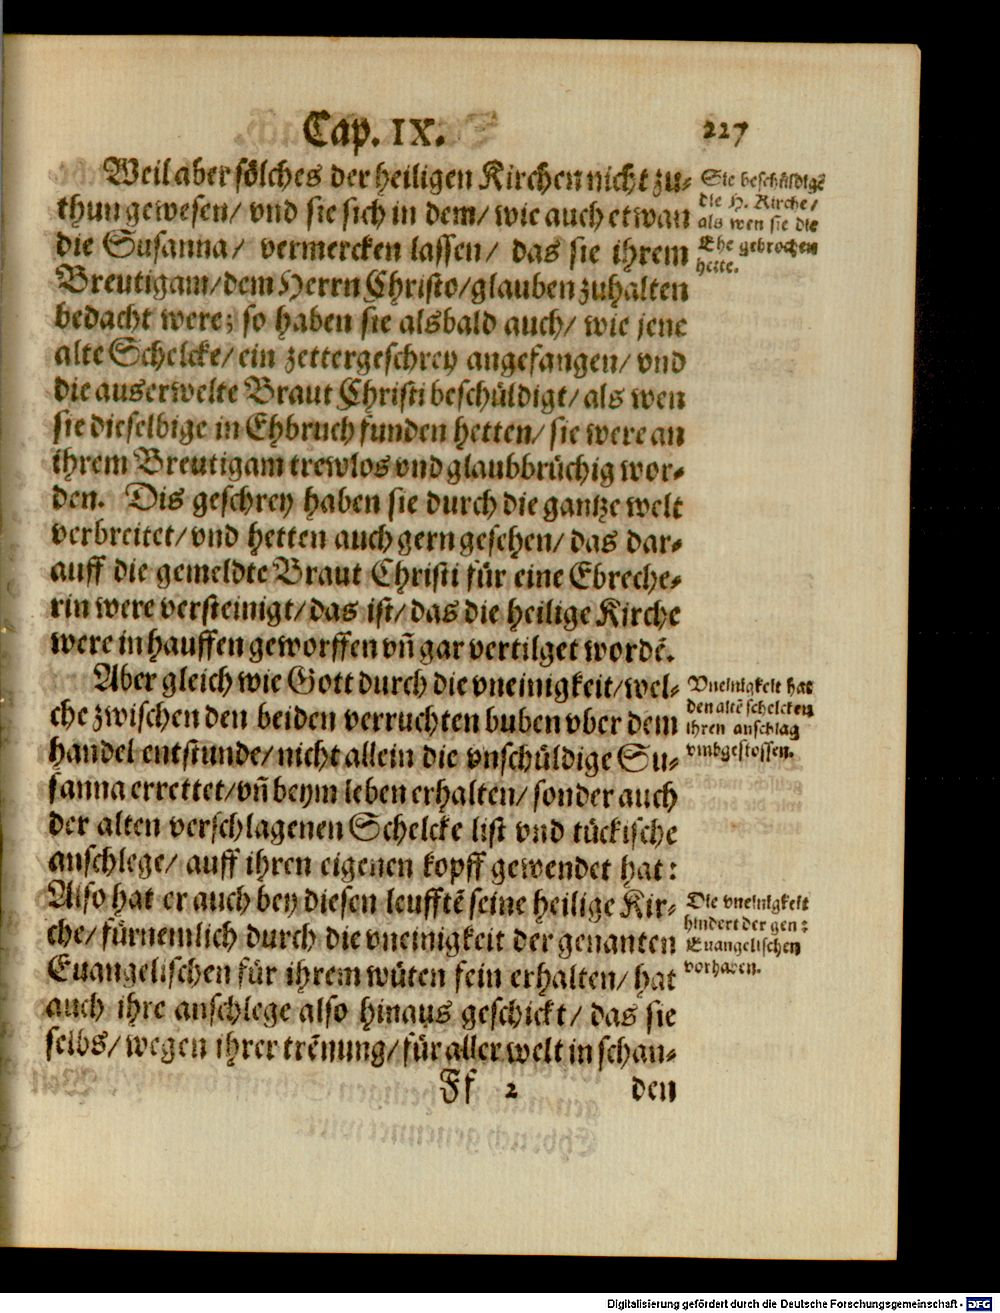 Cap. IX. 227
Weil aber sölches der heiligen Kirchen nicht zu-
thun gewesen/ vnd sie sich in dem/ wie auch etwan
die Susanna/ vermercken lassen/ das sie ihrem
Breutigam/dem Herrn Christo/glauben zuhalten
bedacht were; so haben sie alsbald auch/ wie jene
alte Schelcke/ ein zettergeschrey angefangen/ vnd
die auserwelte Braut Christi beschüldigt/ als wen
sie dieselbige in Ehbruch funden hetten/ sie were an
ihrem Breutigam trewlos vnd glaubbrüchig wor-
den. Dis geschrey haben sie durch die gantze welt
verbreitet/ vnd hetten auch gern gesehen/ das dar-
auff die gemeldte Braut Christi für eine Ebreche-
rin were versteinigt/ das ist/ das die heilige Kirche
were in hauffen geworffen vñ gar vertilget wordẽ.
Sie beschüldigẽ
die H. Kirche/
als wen sie die
Ehe gebrochen
hette.
Aber gleich wie Gott durch die vneinigkeit/ wel-
che zwischen den beiden verruchten buben vber dem
handel entstunde/ nicht allein die vnschüldige Su-
sanna errettet/ vñ beym leben erhalten/ sonder auch
der alten verschlagenen Schelcke list vnd tückische
anschlege/ auff ihren eigenen kopff gewendet hat:
Also hat er auch bey diesen leufftẽ seine heilige Kir-
che/ fürnemlich durch die vneinigkeit der genanten
Euangelischen für ihrem wüten fein erhalten/ hat
auch ihre anschlege also hinaus geschickt/ das sie
selbs/ wegen ihrer trẽnung/ für aller welt in schan-
Vneinigkeit hat
den altẽ schelcken
ihren anschlag
vmbgestossen.
Die vneinigkeit
hindert der gen:
Euangelischen
vorhaben.
Ff 2 den
Digitalisierung gefördert durch die Deutsche Forschungsgemeinschaft - DFG